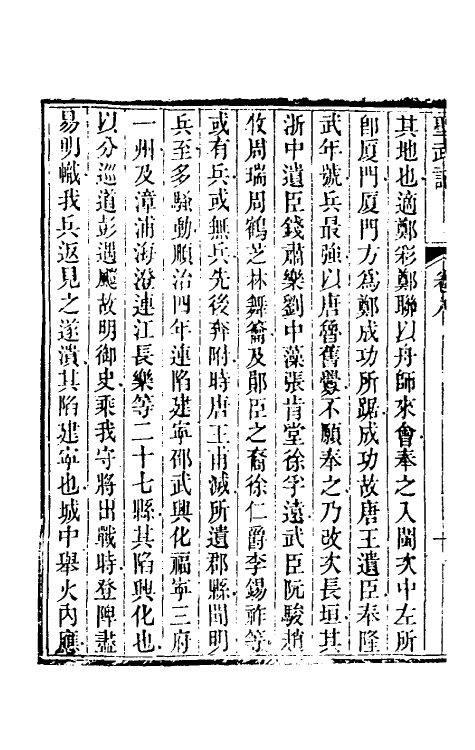 聖武記 卷八 十
其地也適鄭彩鄭聯以舟師來會奉之入閩次中左所
卽厦門厦門方爲鄭成功所踞成功故唐王遺臣奉隆
武年號兵最強以唐魯舊釁不願奉之乃改次長垣其
浙中遺臣錢肅樂劉中藻張肯堂徐孚遠武臣阮駿趙
牧周瑞周鶴芝林舞籥及鄖臣之裔徐仁爵李錫祚等
或有兵或無兵先後奔附時唐王甫滅所遺郡縣聞明
兵至多騷動順治四年連陷建寧邵武興化福寧三府
一州及漳浦海澄連江長樂等二十七縣其陷興化也
以分巡道彭遇颽故明御史乘我守將出戰時登陴盡
易明幟我兵返見之遂潰其陷建寧也城中舉火內應